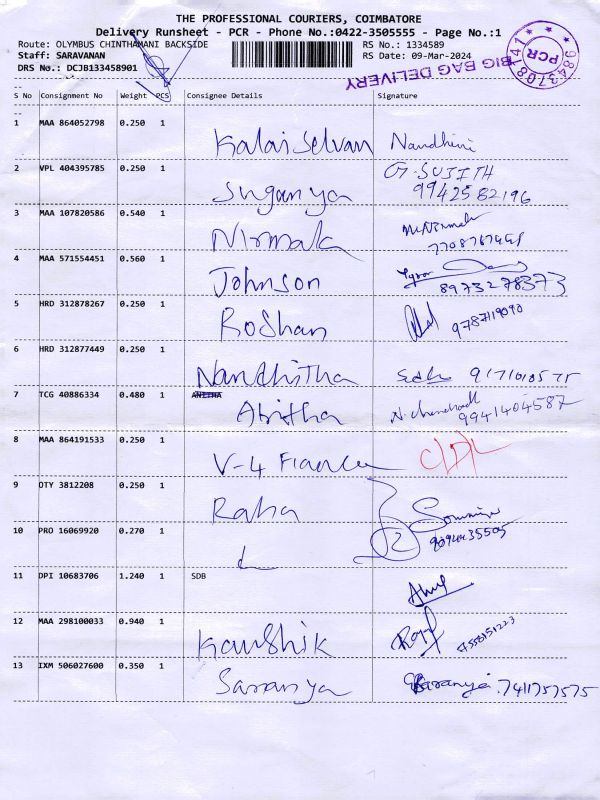 THE PROFESSIONAL COURIERS, COIMBATORE
Delivery Runsheet - PCR - Phone No.:0422-3505555 - Page No.:1
Route: OLYMBUS CHINTHAMANI BACKSIDE RS No.: 1334589
Staff: SARAVANAN RS Date: 09-Mar-2024
DRS No.: DCJB133458901
BIG BAG DELIVERY
PCR
9843708141
S No Consignment No Weight PCS Consignee Details Signature
1 MAA 864052798 0.250 1 Kalai Selvan Nandhini
2 VPL 404395785 0.250 1 Suganya G. SUJITH
9942582196
3 MAA 107820586 0.540 1 Nirmala
4 MAA 571554451 0.560 1 Johnson 8973278373
5 HRD 312878267 0.250 1 Roshan 9787119090
6 HRD 312877449 0.250 1 Nandhitha
7 TCG 40886334 0.480 1 Abitha 9941404587
8 MAA 864191533 0.250 1 V-4 Finance
9 OTY 3812208 0.250 1 Raha Sowmiya
10 PRO 16069920 0.270 1
11 DPI 10683706 1.240 1 SDB
12 MAA 298100033 0.940 1 Kaushik
13 IXM 506027600 0.350 1 Saranya Saranya 7411757575